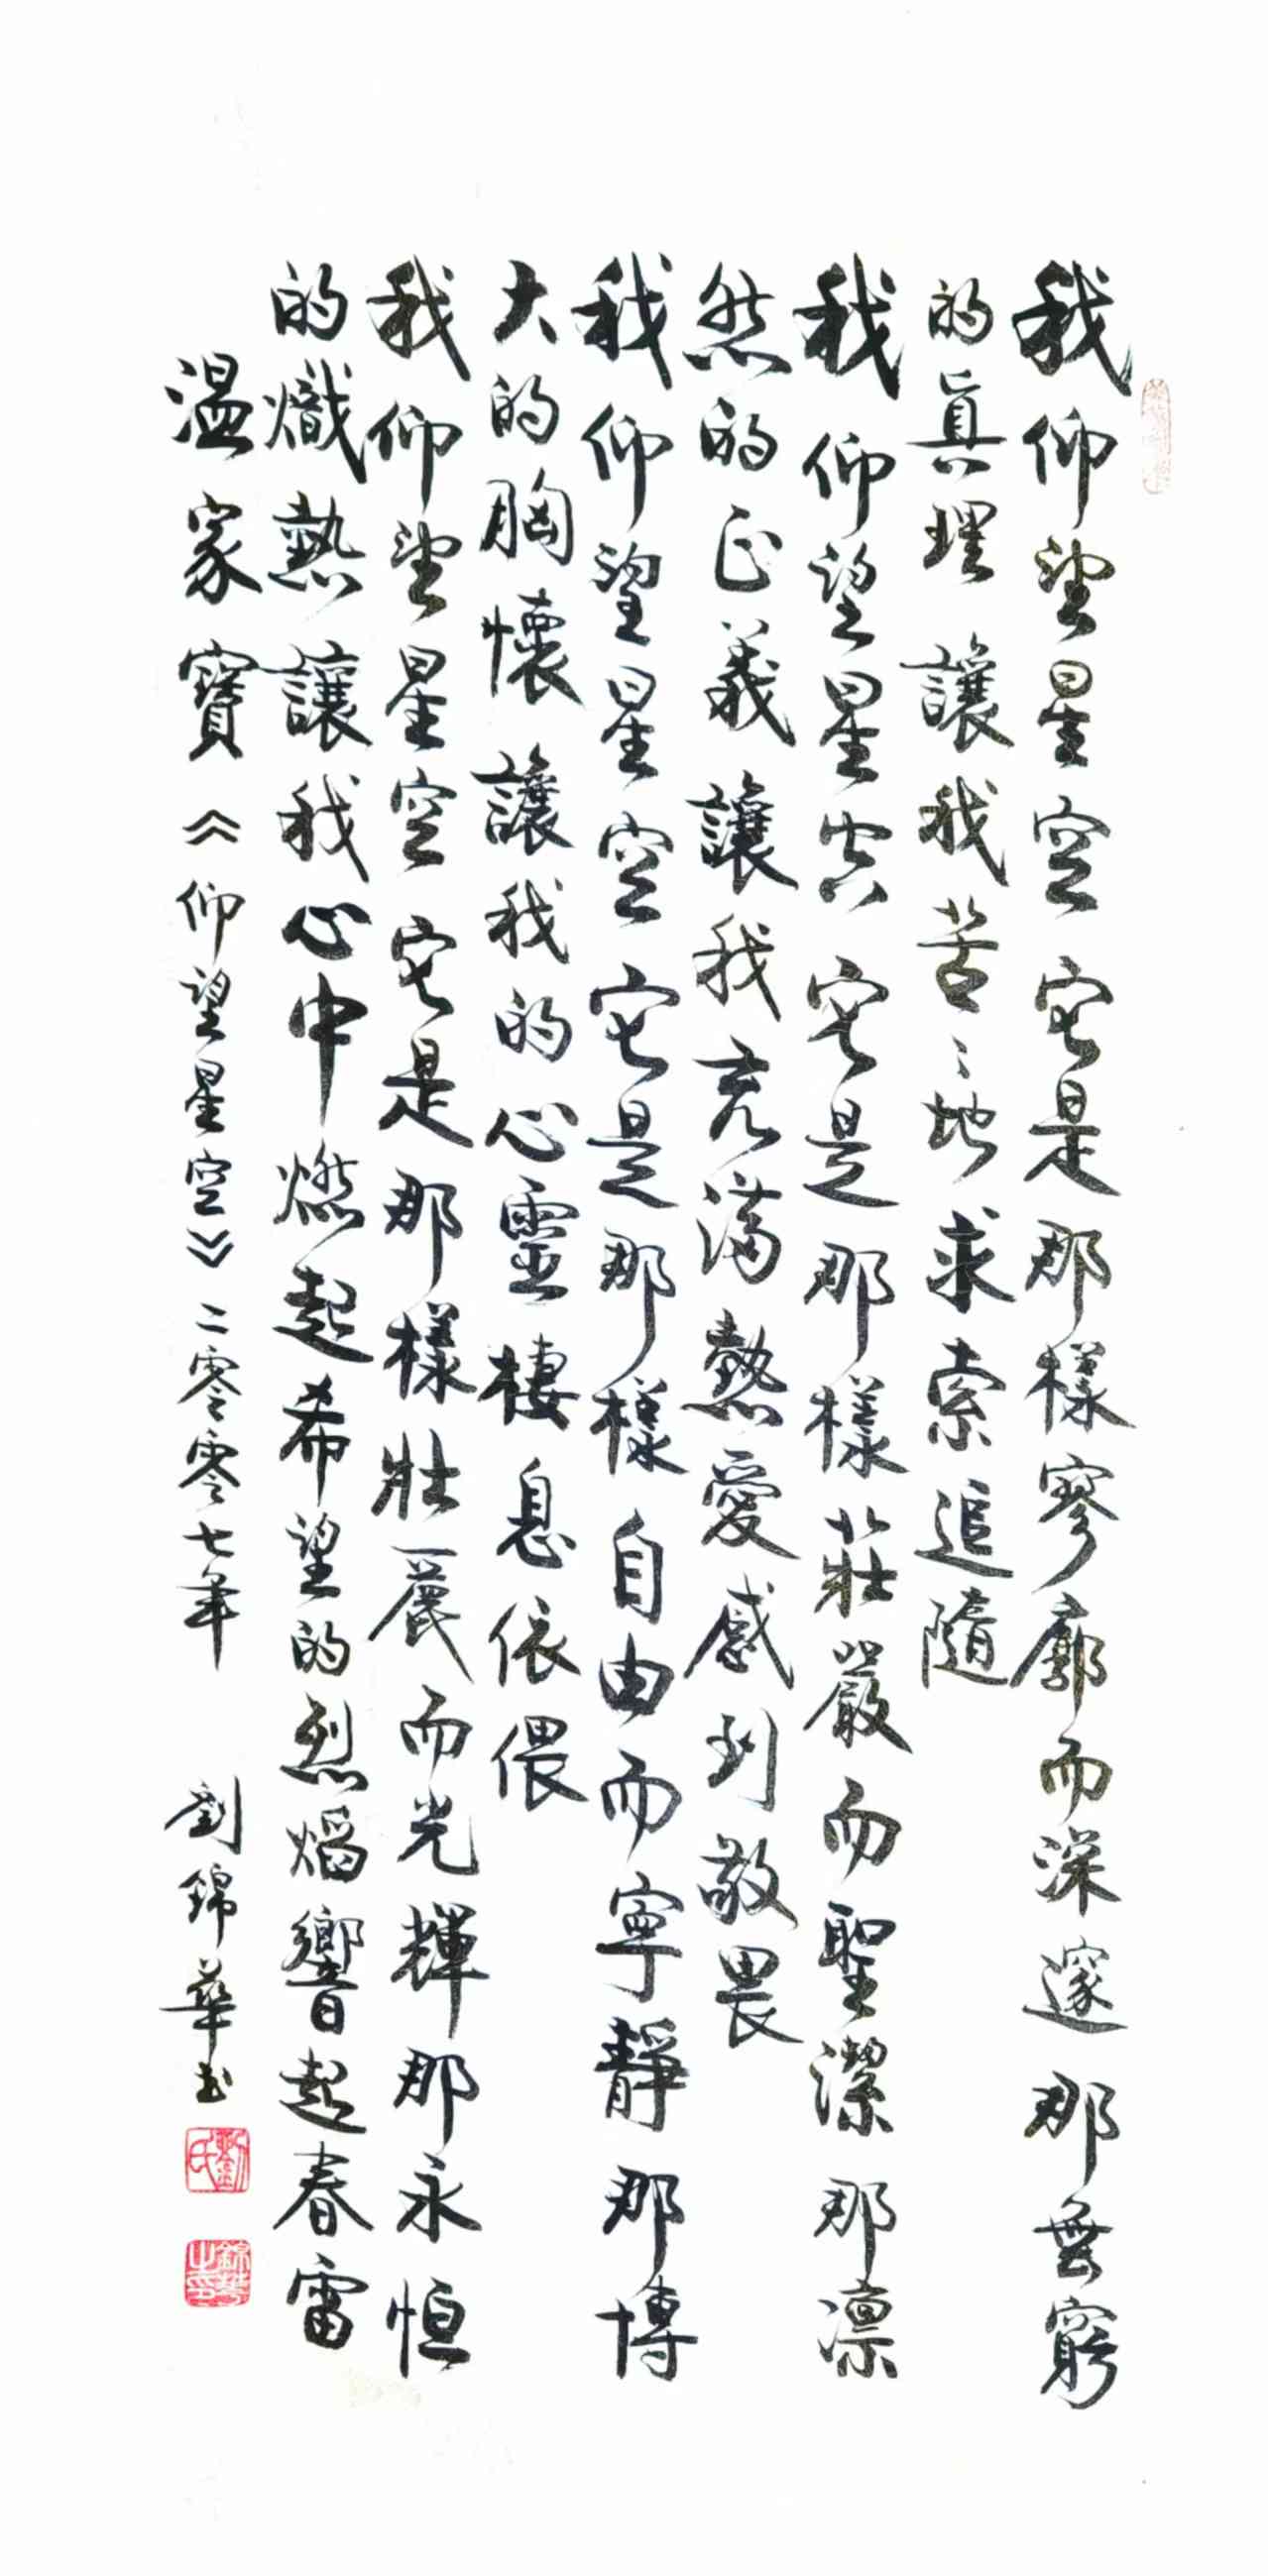 我仰望星空它是那樣寥廓而深邃那無窮
的真理讓我苦〻地求索追隨
我仰望星空它是那樣莊嚴而聖潔那凛
然的正義讓我充滿熱愛感到敬畏
我仰望星空它是那樣自由而寧靜那博
大的胸懷讓我的心靈棲息依偎
我仰望星空它是那樣壯麗而光輝那永恒
的熾熱讓我心中燃起希望的烈焰響起春雷
溫家寶《仰望星空》二零零七年 劉錦華书
劉氏
錦華之印